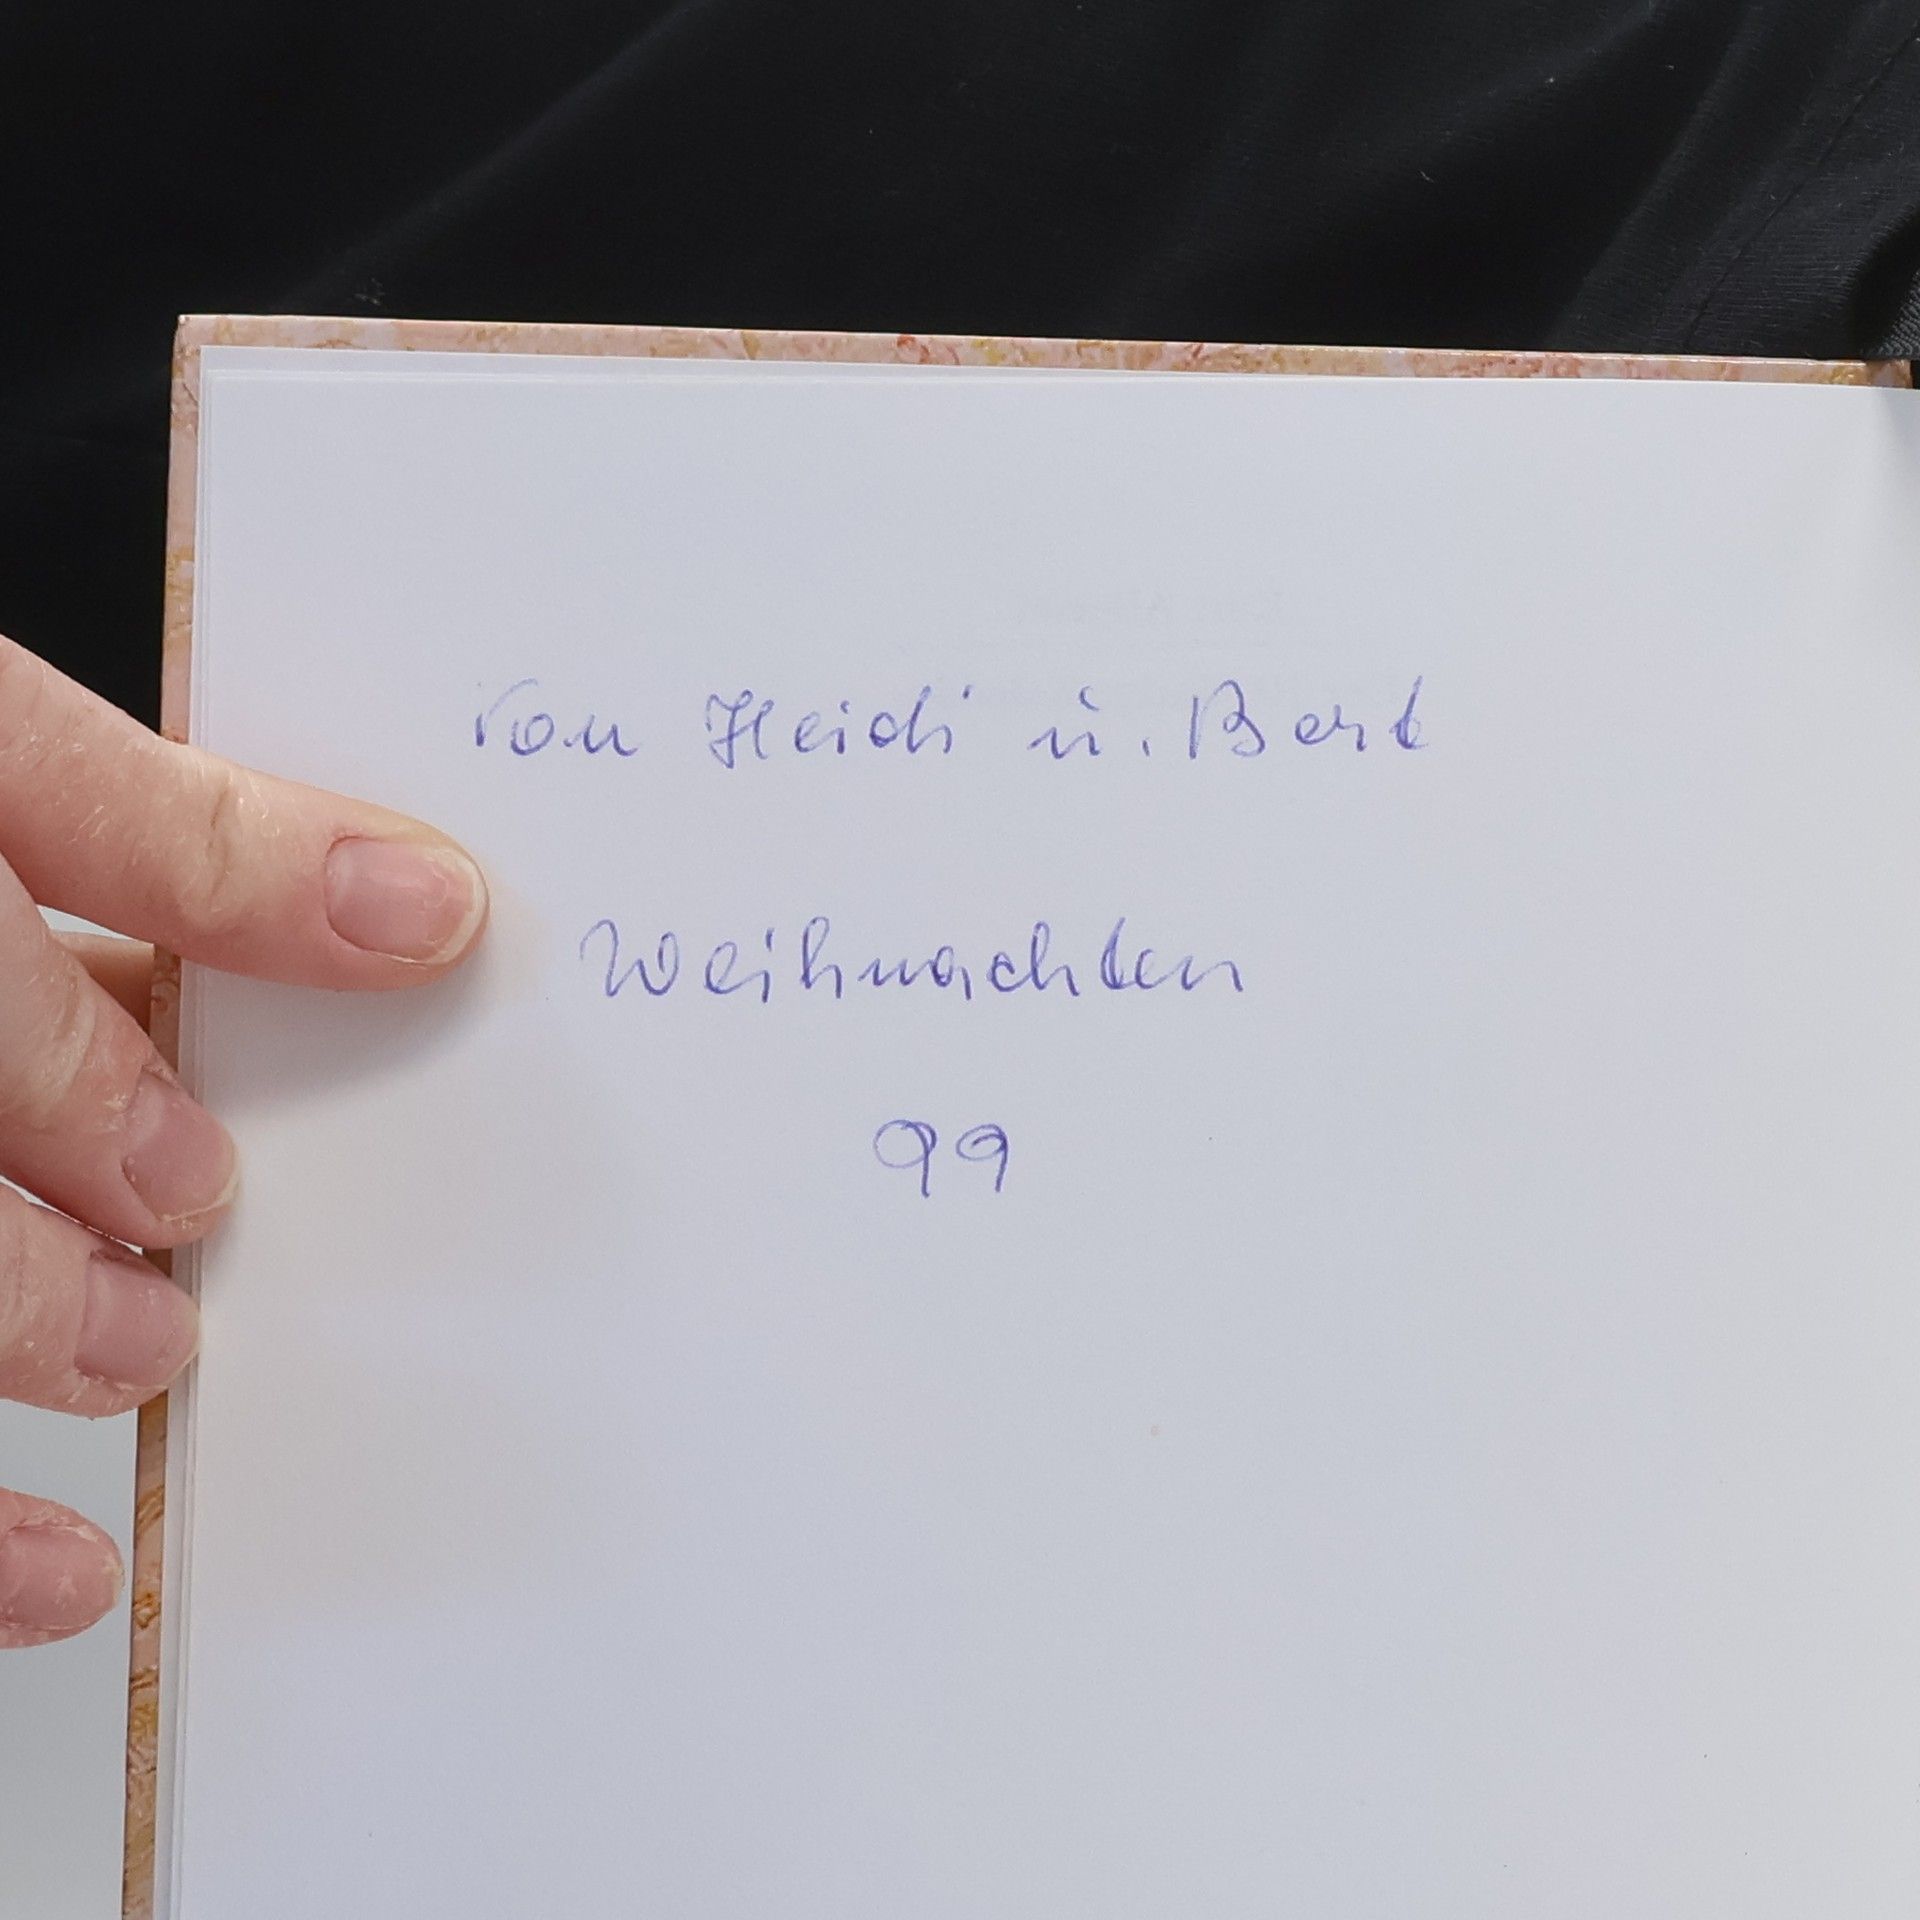 Von Heidi u. Bert
Weihnachten
99